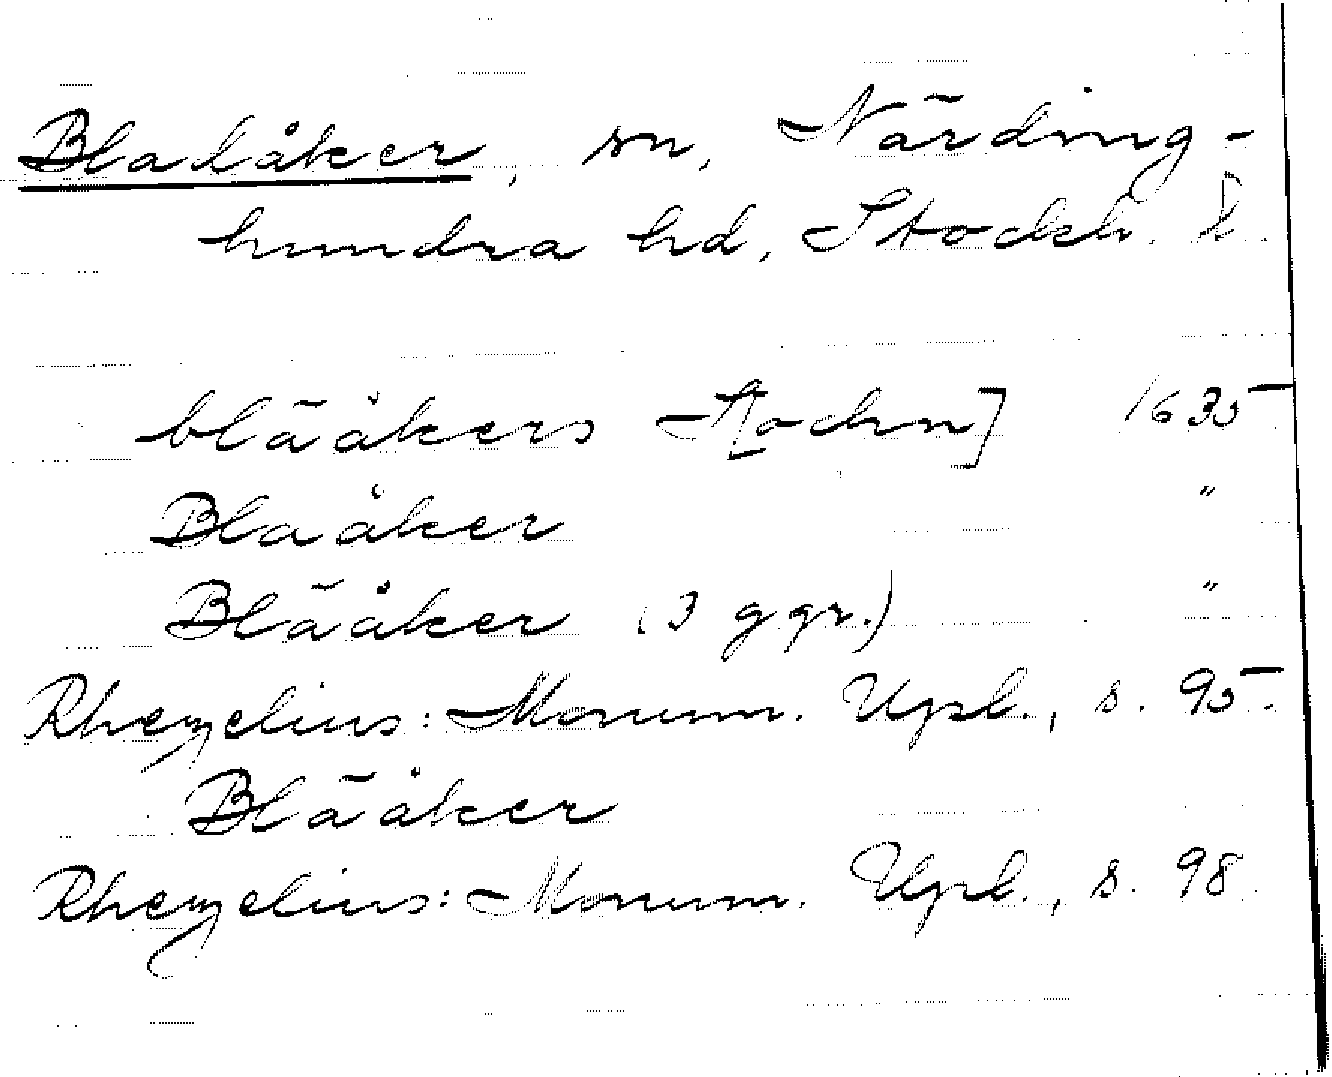 Bladåker, sn, Närding-
hundra hd, Stockh. l.
blääkers S[ochn] 1635
Blaåker "
Blääker (3 ggr.) "
Rhezelius: Monum. Upl., s. 95.
Blääker
Rhezelius: Monum. Upl., s. 98.